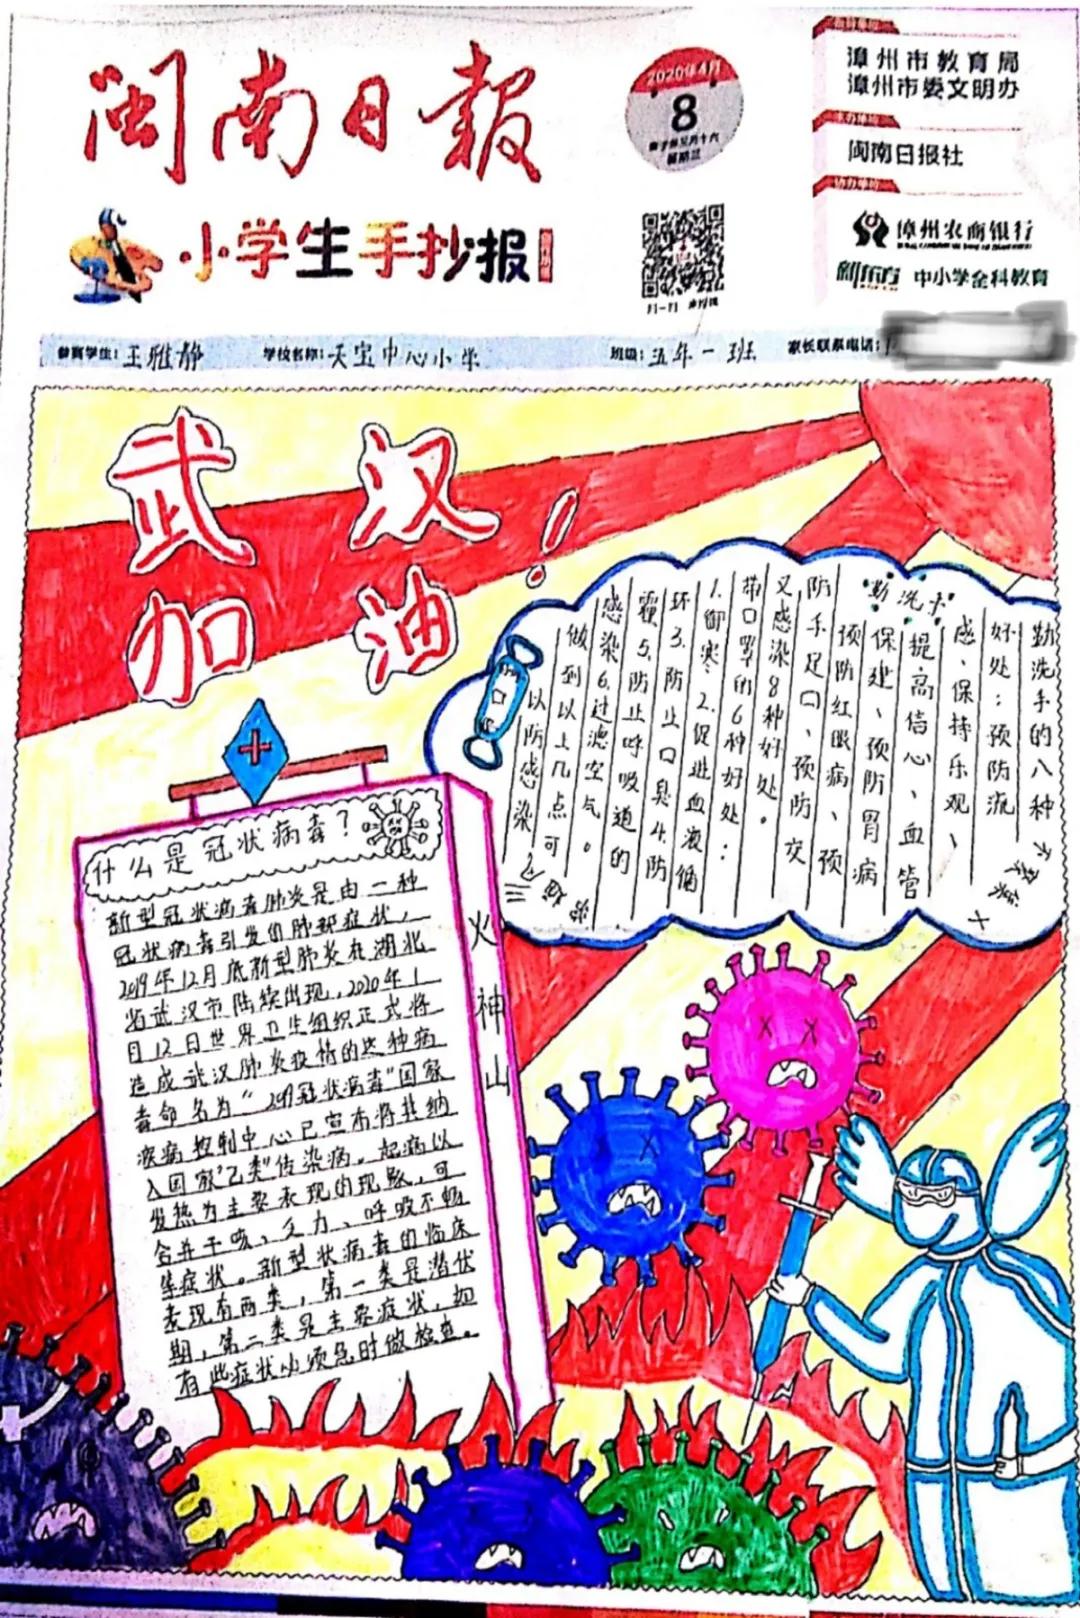 闽南日报
2020年4月
8
星期三
漳州市教育局
漳州市委文明办
闽南日报社
漳州农商银行
新东方 中小学全科教育
小学生手抄报
扫一扫
参赛学生：王雅静 学校名称：天宝中心小学 班级：五年一班 家长联系电话：
武汉
加油！
什么是冠状病毒？
新型冠状病毒肺炎是由一种
冠状病毒引发的肺部症状，
2019年12月底新型肺炎在湖北
省武汉市陆续出现，2020年1
月12日世界卫生组织正式将
造成武汉肺炎疫情的这种病
毒命名为“2019冠状病毒”国家
疾病控制中心已宣布将其纳
入国家“乙类”传染病。起病以
发热为主要表现的现象，可
合并干咳、乏力、呼吸不畅
等症状。新型状病毒的临床
表现有两类，第一类是潜伏
期，第二类是主要症状，如
有些症状必须急时做检查。
火神山
勤洗手
勤洗手的八种
好处：预防流
感、保持乐观、
提高信心、血管
保建、预防胃病
预防红眼病、预
防手足口、预防交
叉感染8种好处。
带口罩的6种好处：
1.御寒2.促进血液循
环3.防止口臭4.防
霾5.防止呼吸道的
感染6.过滤空气。
做到以上几点可
以防感染